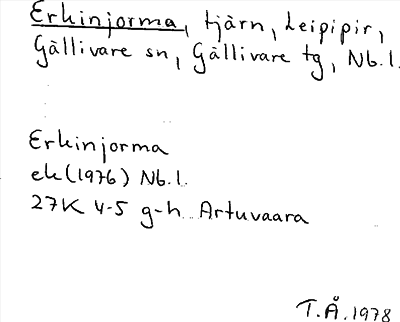 Erkinjorma, tjärn, Leipipir,
Gällivare sn, Gällivare tg, Nb.l.
Erkinjorma
ek(1976) Nb.l.
27K 4-5 g-h Artuvaara
T.Å. 1978